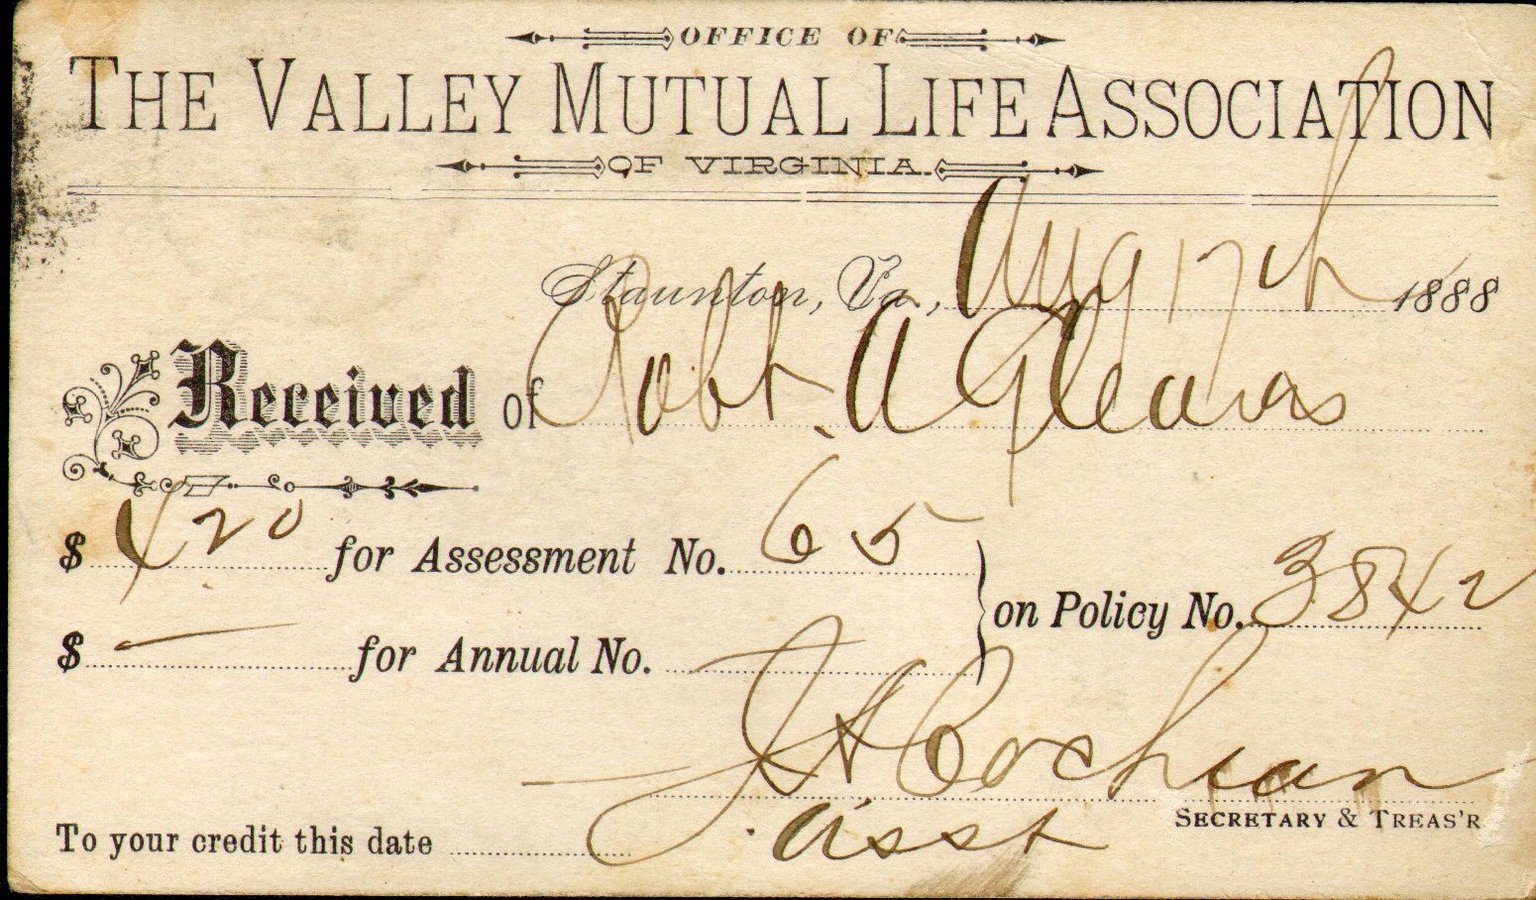 OFFICE OF
THE VALLEY MUTUAL LIFE ASSOCIATION
OF VIRGINIA.
Staunton, Va., Aug 17th 1888
Received of Robt. A Gleaves
$ 4 20 for Assessment No. 65
on Policy No. 3842
$ — for Annual No.
J A Cochran
Asst SECRETARY & TREAS'R
To your credit this date